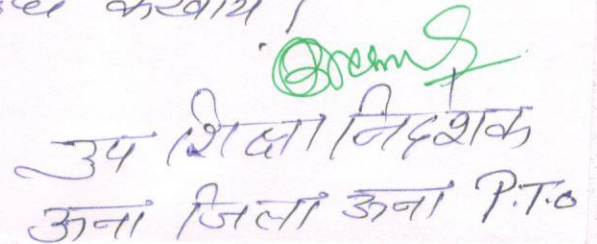 करवायें।
उप शिक्षा निदेशक
ऊना जिला ऊना P.T.O